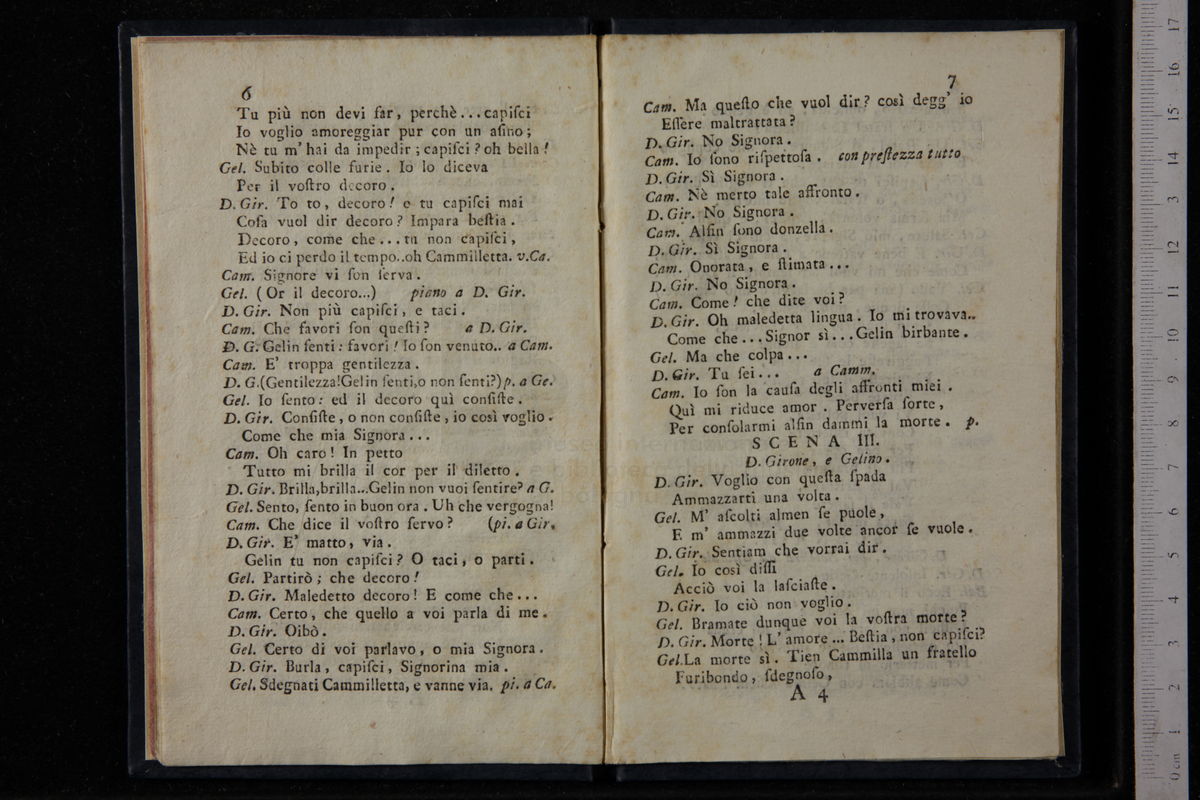 6
Tu più non devi far, perchè... capiſci
Io voglio amoreggiar pur con un aſino;
Nè tu m' hai da impedir; capiſci? oh bella!
Gel. Subito colle furie. Io lo diceva
Per il voſtro decoro.
D. Gir. To to, decoro! e tu capiſci mai
Coſa vuol dir decoro? Impara beſtia.
Decoro, come che... tu non capiſci,
Ed io ci perdo il tempo..oh Cammilletta. v.Ca.
Cam. Signore vi ſon ſerva.
Gel. (Or il decoro...) piano a D. Gir.
D. Gir. Non più capiſci, e taci.
Cam. Che favori ſon queſti? a D. Gir.
D. G. Gelin ſenti: favori! Io ſon venuto.. a Cam.
Cam. E' troppa gentilezza.
D. G.(Gentilezza!Gelin ſenti,o non ſenti?)p. a Ge.
Gel. Io ſento: ed il decoro quì conſiſte.
D. Gir. Conſiſte, o non conſiſte, io così voglio.
Come che mia Signora...
Cam. Oh caro! In petto
Tutto mi brilla il cor per il diletto.
D. Gir. Brilla,brilla...Gelin non vuoi ſentire? a G.
Gel. Sento, ſento in buon ora. Uh che vergogna!
Cam. Che dice il voſtro ſervo? (pi. a Gir.
D. Gir. E' matto, via.
Gelin tu non capiſci? O taci, o parti.
Gel. Partirò; che decoro!
D. Gir. Maledetto decoro! E come che...
Cam. Certo, che quello a voi parla di me.
D. Gir. Oibò.
Gel. Certo di voi parlavo, o mia Signora.
D. Gir. Burla, capiſci, Signorina mia.
Gel. Sdegnati Cammilletta, e vanne via. pi. a Ca.
7
Cam. Ma queſto che vuol dir? così degg' io
Eſſere maltrattata?
D. Gir. No Signora.
Cam. Io ſono riſpettoſa. con preſtezza tutto
D. Gir. Sì Signora.
Cam. Nè merto tale affronto.
D. Gir. No Signora.
Cam. Alfin ſono donzella.
D. Gir. Sì Signora.
Cam. Onorata, e ſtimata...
D. Gir. No Signora.
Cam. Come! che dite voi?
D. Gir. Oh maledetta lingua. Io mi trovava..
Come che... Signor sì... Gelin birbante.
Gel. Ma che colpa...
D. Gir. Tu ſei... a Camm.
Cam. Io ſon la cauſa degli affronti miei.
Quì mi riduce amor. Perverſa ſorte,
Per conſolarmi alfin dammi la morte. p.
SCENA III.
D. Girone, e Gelino.
D. Gir. Voglio con queſta ſpada
Ammazzarti una volta.
Gel. M' aſcolti almen ſe puole,
E m' ammazzi due volte ancor ſe vuole.
D. Gir. Sentiam che vorrai dir.
Gel. Io così diſſi
Acciò voi la laſciaſte.
D. Gir. Io ciò non voglio.
Gel. Bramate dunque voi la voſtra morte?
D. Gir. Morte! L' amore... Beſtia, non capiſci?
Gel.La morte sì. Tien Cammilla un fratello
Furibondo, ſdegnoſo,
A 4